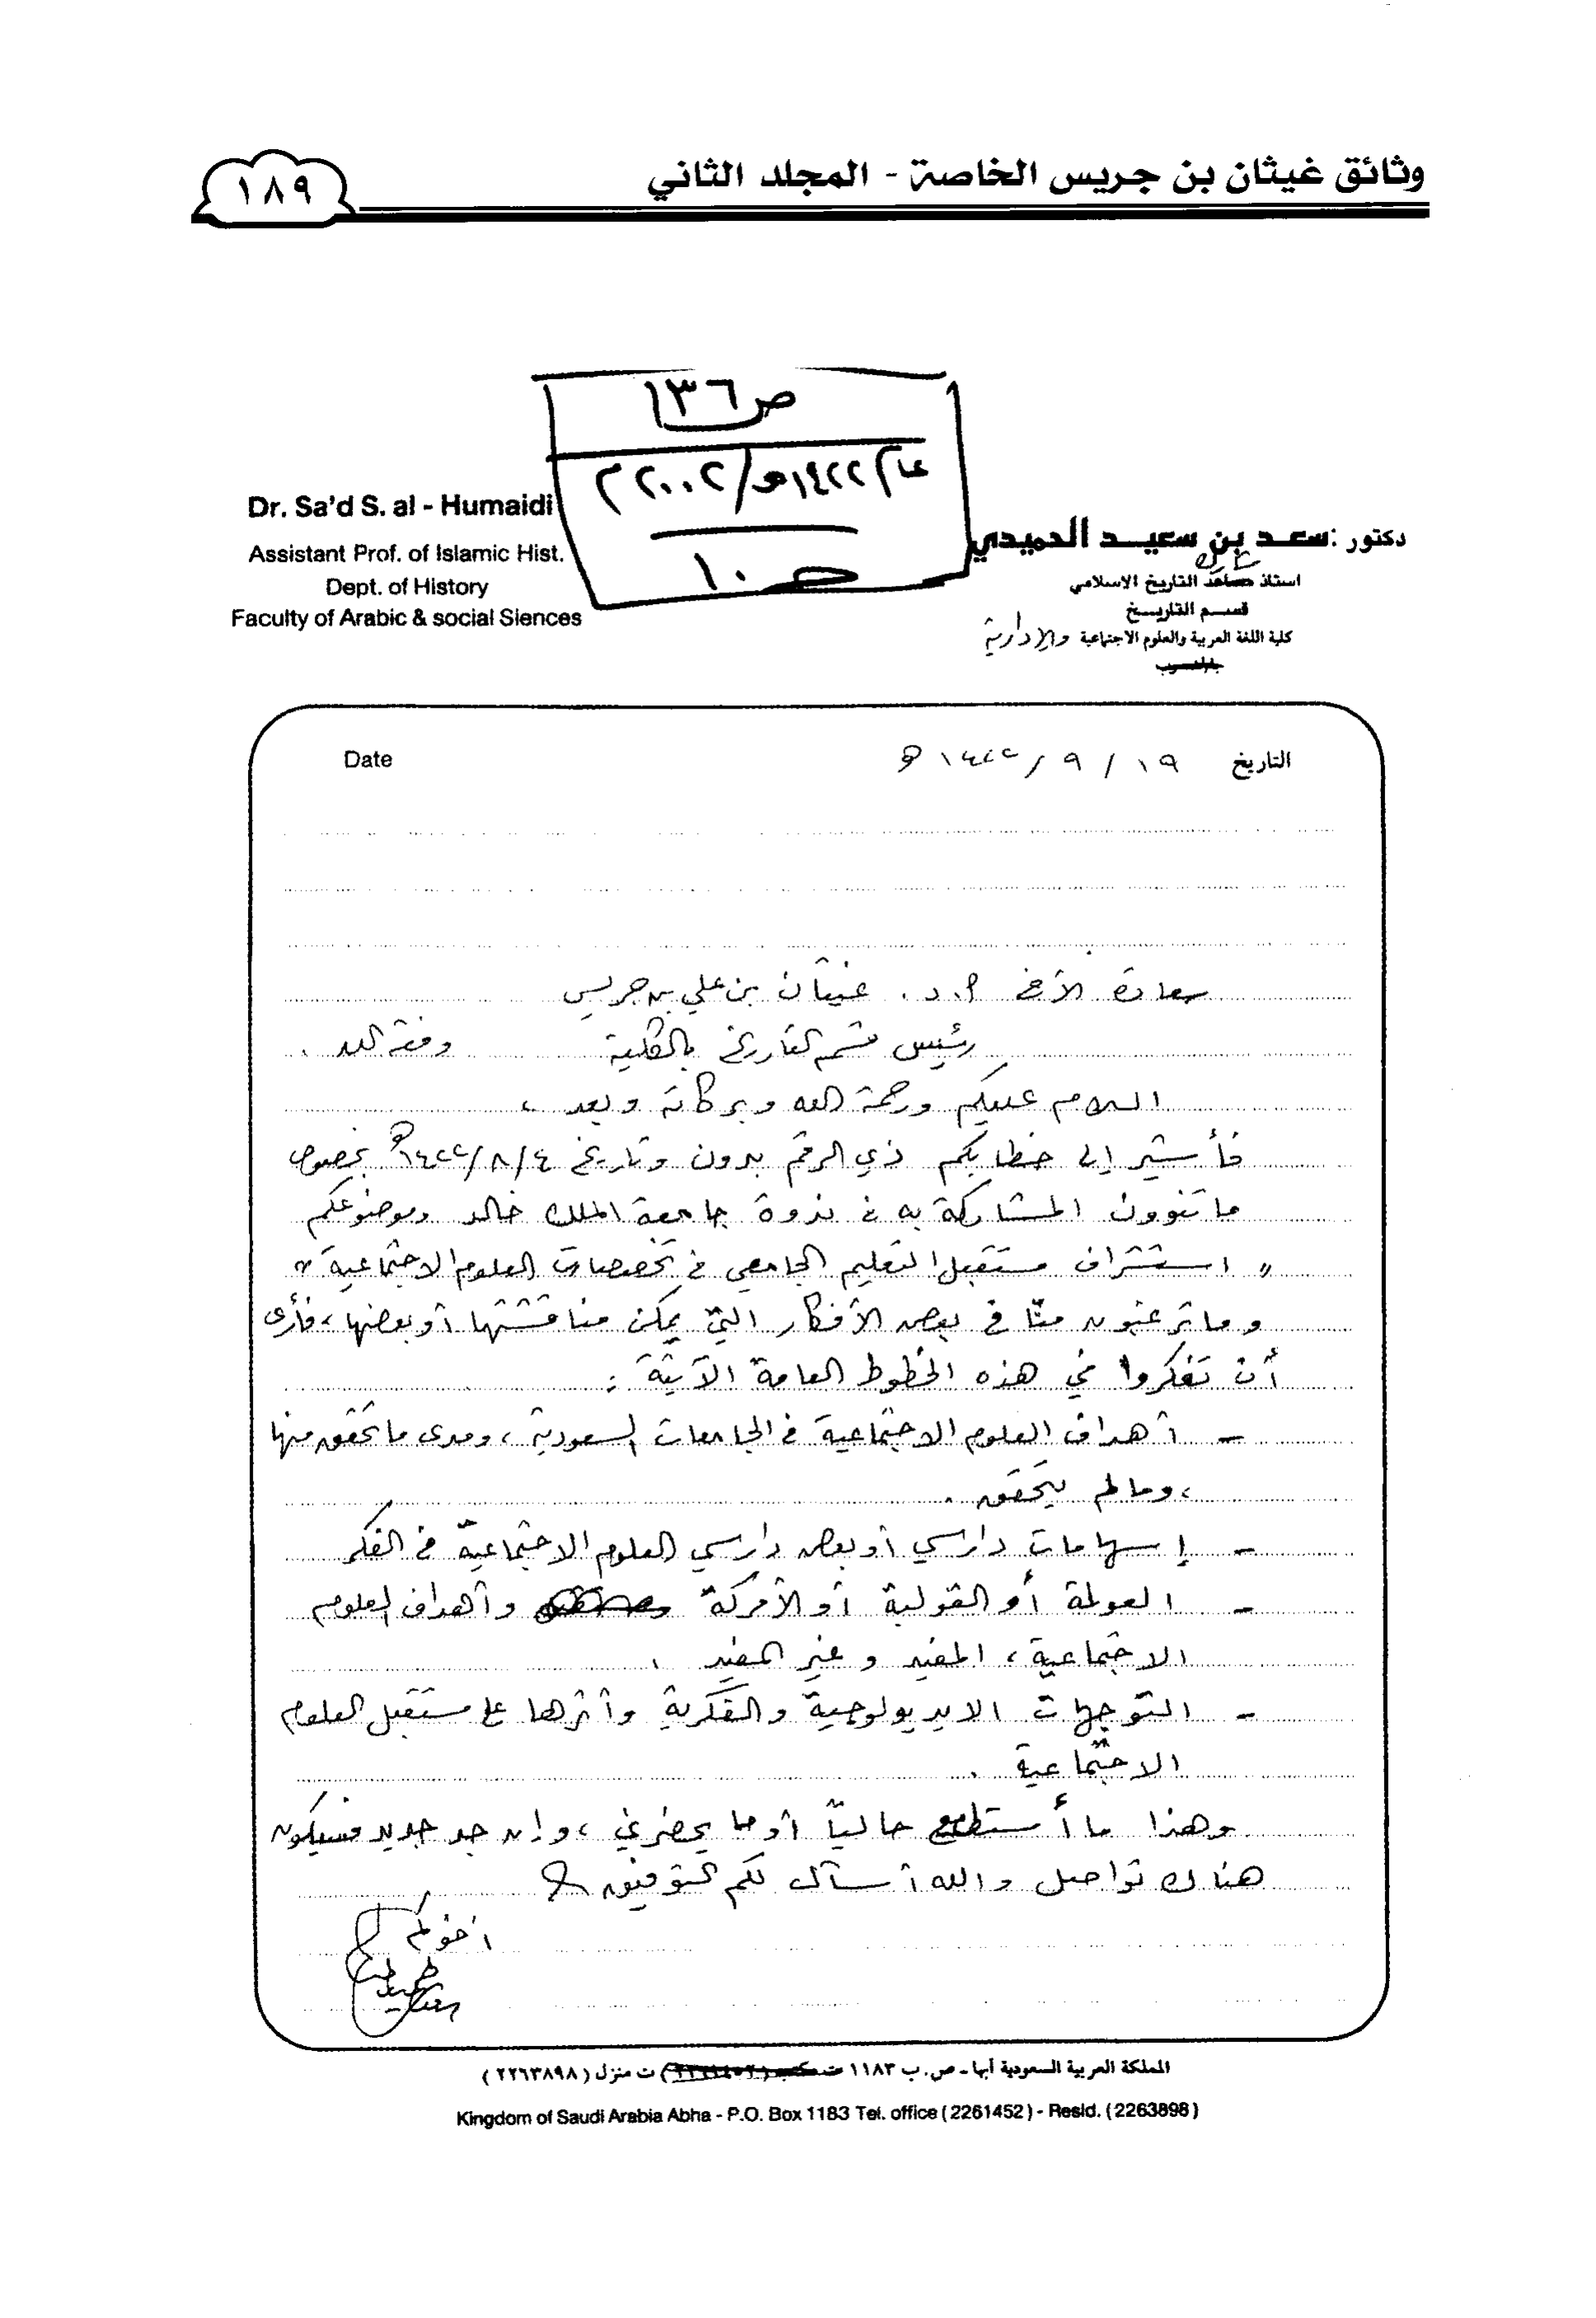 وثائق غيثان بن جريس الخاصة - المجلد الثاني
١٨٩
ص ١٣٦
عام ١٤٢٢هـ/٢٠٠٢م
ص ١٠
Dr. Sa'd S. al - Humaidi
Assistant Prof. of Islamic Hist.
Dept. of History
Faculty of Arabic & social Siences
دكتور : سعد بن سعيد الحميدي
مشارك
استاذ مساعد التاريخ الاسلامي
قسم التاريخ
كلية اللغة العربية والعلوم الاجتماعية والإدارية
التاريخ ١٩ / ٩ / ١٤٢٢ هـ
Date
سعادة الأخ أ. د. غيثان بن علي بن جريس
رئيس قسم التاريخ بالكلية وفقه الله .
السلام عليكم ورحمة الله وبركاته وبعد ،
فأشير إلى خطابكم ذي الرقم بدون وتاريخ ١٤٢٢/٨/٤هـ بخصوص
ما تنوون المشاركة به في ندوة جامعة الملك خالد وموضوعكم
" استشراف مستقبل التعليم الجامعي في تخصصات العلوم الاجتماعية "
وما ترغبون منّا في بعض الأفكار التي يمكن مناقشتها أو بعضها ، فأرى
أن تفكروا في هذه الخطوط العامة الآتية :
- أهداف العلوم الاجتماعية في الجامعات السعودية ، ومدى ما تحقق منها
، وما لم يتحقق .
- إسهامات دارسي أو بعض دارسي العلوم الاجتماعية في الفكر
- العولمة أو القولبة أو الأمركة وأهداف العلوم
الاجتماعية ، المفيد وغير المفيد .
- التوجهات الايديولوجية والفكرية وأثرها على مستقبل العلوم
الاجتماعية .
وهذا ما أستطيع حالياً أو ما يحضرني ، وإن جد جديد فسيكون
هناك تواصل والله أسأل لكم التوفيق
أخوكم
المملكة العربية السعودية أبها - ص. ب ١١٨٣ ت مكتب (٢٢٦١٤٥٢) ت منزل (٢٢٦٣٨٩٨)
Kingdom of Saudi Arabia Abha - P.O. Box 1183 Tel. office (2261452) - Resid. (2263898)